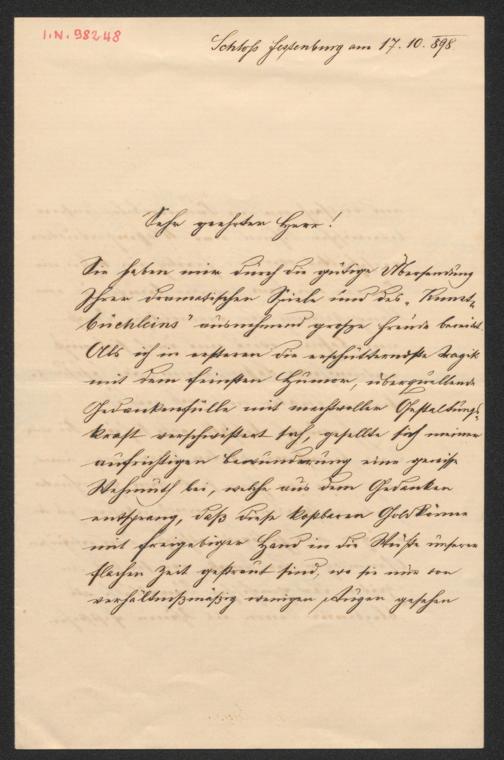 I.N. 98248
Schloß Festenburg am 17. 10. 898.
Sehr geehrter Herr!
Sie haben mir durch die gütige Übersendung
Ihrer dramatischen Spiele und des „Kunst-
büchleins" ausnehmend große Freude bereitet.
Als ich in ersteren die erschütterndste Tragik
mit dem feinsten Humor, überquellende
Gedankenfülle mit machtvoller Gestaltungs-
kraft verschwistert sah, gesellte sich meiner
aufrichtigen Bewunderung eine gewisse
Wehmuth bei, welche aus dem Gedanken
entsprang, daß diese kostbaren Goldkörner
mit freigebiger Hand in die Wüste unserer
flachen Zeit gestreut sind, wo sie nur von
verhältnißmäßig wenigen Augen gesehen